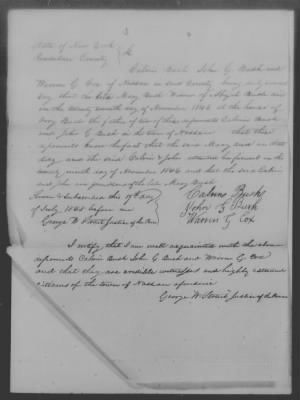 State of New York
Rensselaer County } ss
Calvin Bush John G Bush and
Warren G. Cox of Nassau in said County being duly sworn
say that the late Mary Bush Widow of
in the twenty month day of November 1846 at the house of
Bush the father of two of these deponents Calvin Bush
and John G Bush in the town of Nassau that these
deponents know the fact that the said Mary died on that
day and the said Calvin & John attended her funeral on the
day of November 1846 and that the said Calvin
and John are grandsons of the late Mary Bush
Sworn & Subscribed this 19th day
of July, before me
George W. Justice of the Peace
Calvin Bush
John G Bush
Warren G Cox
I certify that I am well acquainted with the above
deponents Calvin Bush John G Bush and Warren G. Cox
and that they are credible witnesses and highly esteemed
citizens of the town of Nassau aforesaid
George W. Justice of the Peace